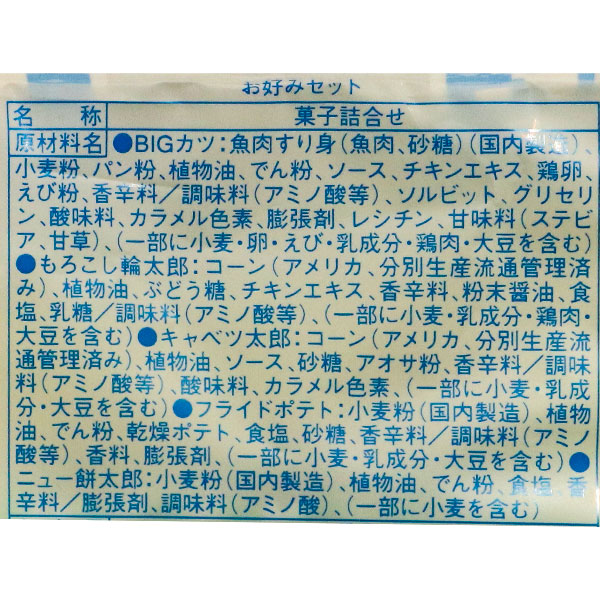 お好みセット
名 称 菓子詰合せ
原材料名 ●BIGカツ:魚肉すり身(魚肉、砂糖)(国内製造)、
小麦粉、パン粉、植物油、でん粉、ソース、チキンエキス、鶏卵、
えび粉、香辛料/調味料(アミノ酸等)、ソルビット、グリセリ
ン、酸味料、カラメル色素、膨張剤、レシチン、甘味料(ステビ
ア、甘草)、(一部に小麦・卵・えび・乳成分・鶏肉・大豆を含む)
●もろこし輪太郎:コーン(アメリカ、分別生産流通管理済
み)、植物油、ぶどう糖、チキンエキス、香辛料、粉末醤油、食
塩、乳糖/調味料(アミノ酸等)、(一部に小麦・乳成分・鶏肉・
大豆を含む)●キャベツ太郎:コーン(アメリカ、分別生産流
通管理済み)、植物油、ソース、砂糖、アオサ粉、香辛料/調味
料(アミノ酸等)、酸味料、カラメル色素、(一部に小麦・乳成
分・大豆を含む)●フライドポテト:小麦粉(国内製造)、植物
油、でん粉、乾燥ポテト、食塩、砂糖、香辛料/調味料(アミノ
酸等)、香料、膨張剤、(一部に小麦・乳成分・大豆を含む)●
ニュー餅太郎:小麦粉(国内製造)、植物油、でん粉、食塩、香
辛料/膨張剤、調味料(アミノ酸)、(一部に小麦を含む)